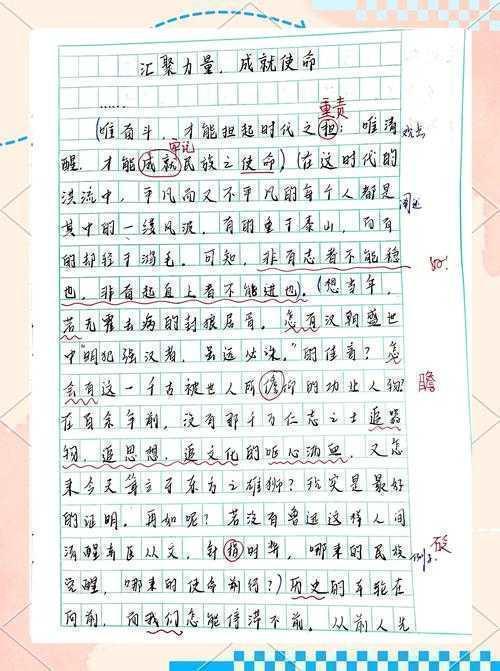 汇聚力量，成就使命
……
重责
（唯奋斗，才能担起时代之担；唯清
观点
牢记
醒，才能成就民族之使命）（在这时代的
洪流中，平凡而又不平凡的每个人都是
阐述
其中的一缕风波，有的重于泰山，而有
的却轻于鸿毛。可知，非有志者不能稳
也，非奋起直上者不能进也）。（想当年，
若无霍去病的封狼居胥。怎有汉朝盛世
中"明犯强汉者，虽远必诛。"的佳音？怎
会有这一千古被世人所儋仰的功让人物？
瞻
在百余年前，没有那千万仁志之士追器
物，追思想，追文化的呕心沥血，又怎
来今天耸立于东方之雄狮？ 实是最好
的证明。再如呢？若没有鲁迅这样人间
清醒弃医从文，针 时弊，哪来的民族
砭
例子
完醒，哪来的使命前行？）历史的车轮在
向前，而我们怎能停滞不前。从前人先